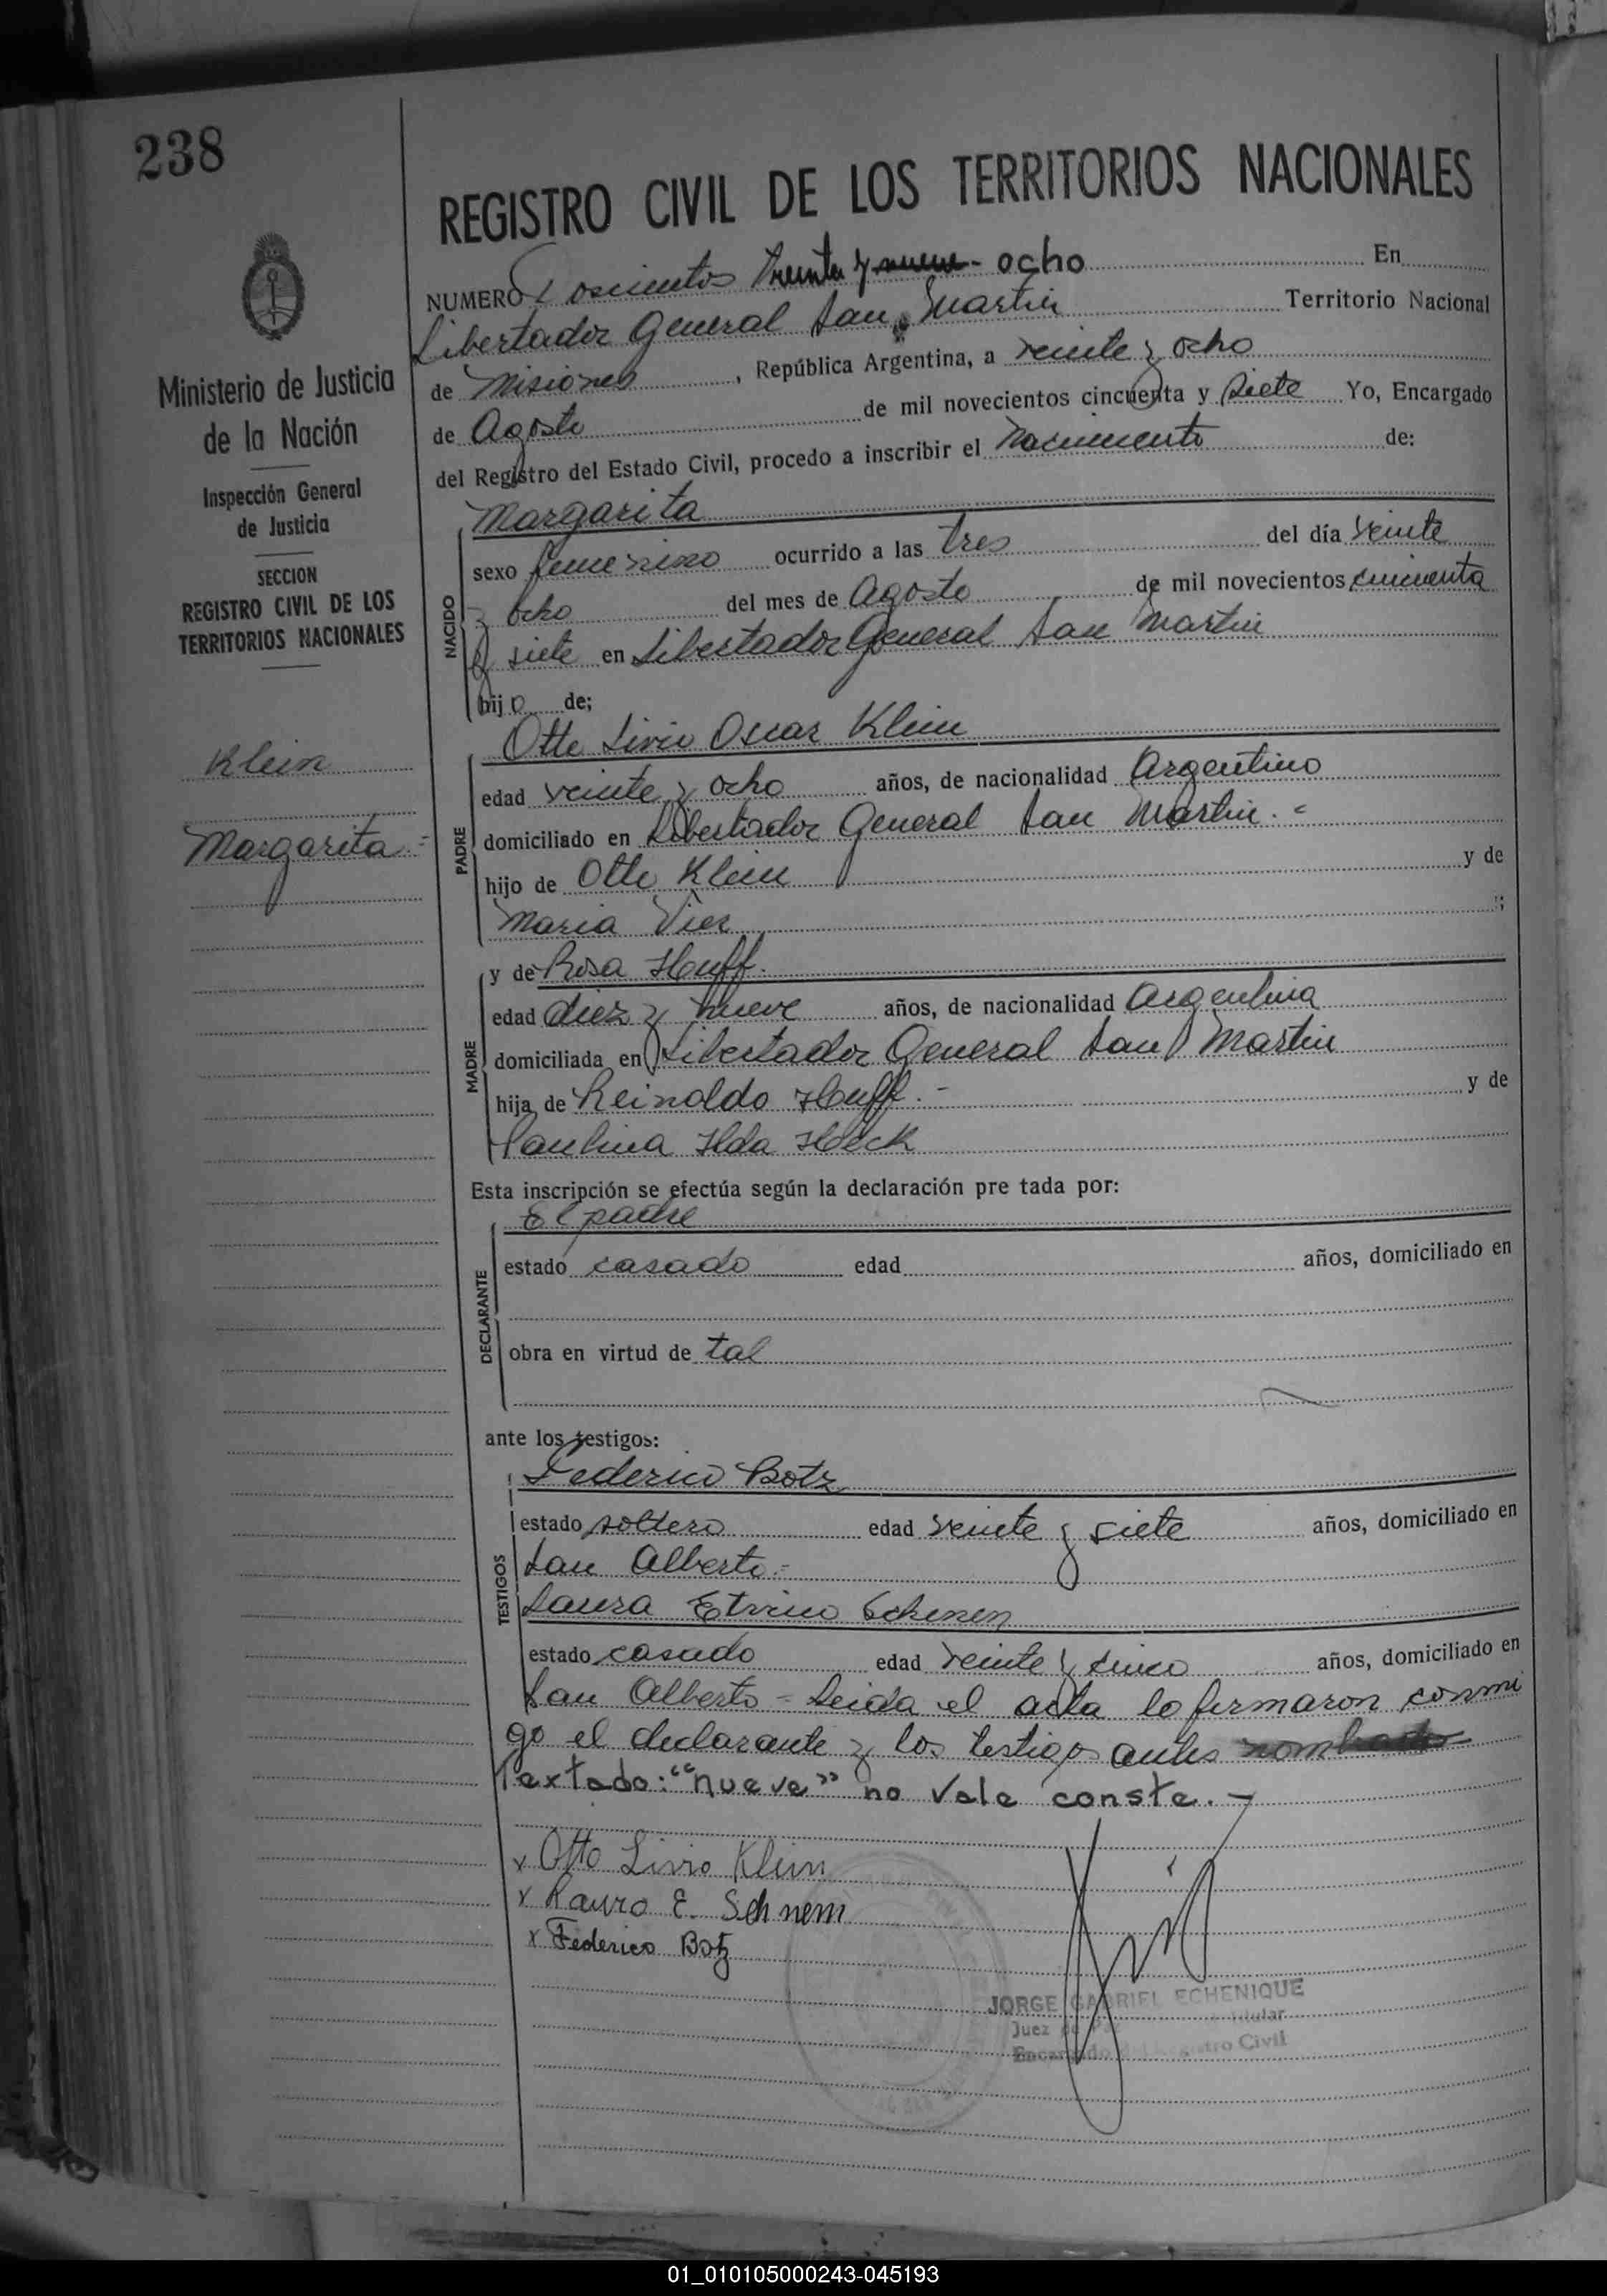 238
REGISTRO CIVIL DE LOS TERRITORIOS NACIONALES
NUMERO Doscientos treinta y nueve - ocho En
Libertador General San Martin Territorio Nacional
de Misiones, República Argentina, a veinte y ocho
de Agosto de mil novecientos cincuenta y siete Yo, Encargado
del Registro del Estado Civil, procedo a inscribir el nacimiento de:
Ministerio de Justicia
de la Nación
Inspección General
de Justicia
SECCION
REGISTRO CIVIL DE LOS
TERRITORIOS NACIONALES
Klein
Margarita =
NACIDO
Margarita
sexo femenino ocurrido a las tres del día veinte
y ocho del mes de Agosto de mil novecientos cincuenta
y siete en Libertador General San Martin
hijo de;
PADRE
Otto Livio Oscar Klein
edad veinte y ocho años, de nacionalidad Argentino
domiciliado en Libertador General San Martin. =
hijo de Otto Klein y de
Maria Vier ;
MADRE
y de Rosa Huff.
edad diez y nueve años, de nacionalidad Argentina
domiciliada en Libertador General San Martin
hija de Reinoldo Huff. - y de
Paulina Ilda Heck
Esta inscripción se efectúa según la declaración pre tada por:
DECLARANTE
El padre
estado casado edad años, domiciliado en
obra en virtud de tal
ante los testigos:
TESTIGOS
Federico Botz
estado soltero edad veinte y siete años, domiciliado en
San Alberto. =
Laura Schenen
estado casado edad veinte y cinco años, domiciliado en
San Alberto = Leida el acta lo firmaron conmi
go el declarante y los testigos antes nombrados
Textado: "nueve" no vale conste. -
x Otto Livio Klein
x Lauro E. Schnem
x Federico Botz
JORGE GABRIEL ECHENIQUE
Juez de Paz Titular
Encargado del Registro Civil
01_010105000243-045193